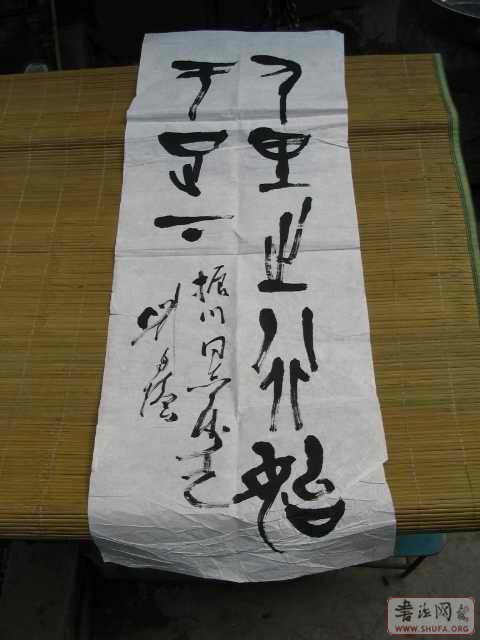 千里之行始
于足下
振川同志
書法网
WWW.SHUFA.ORG